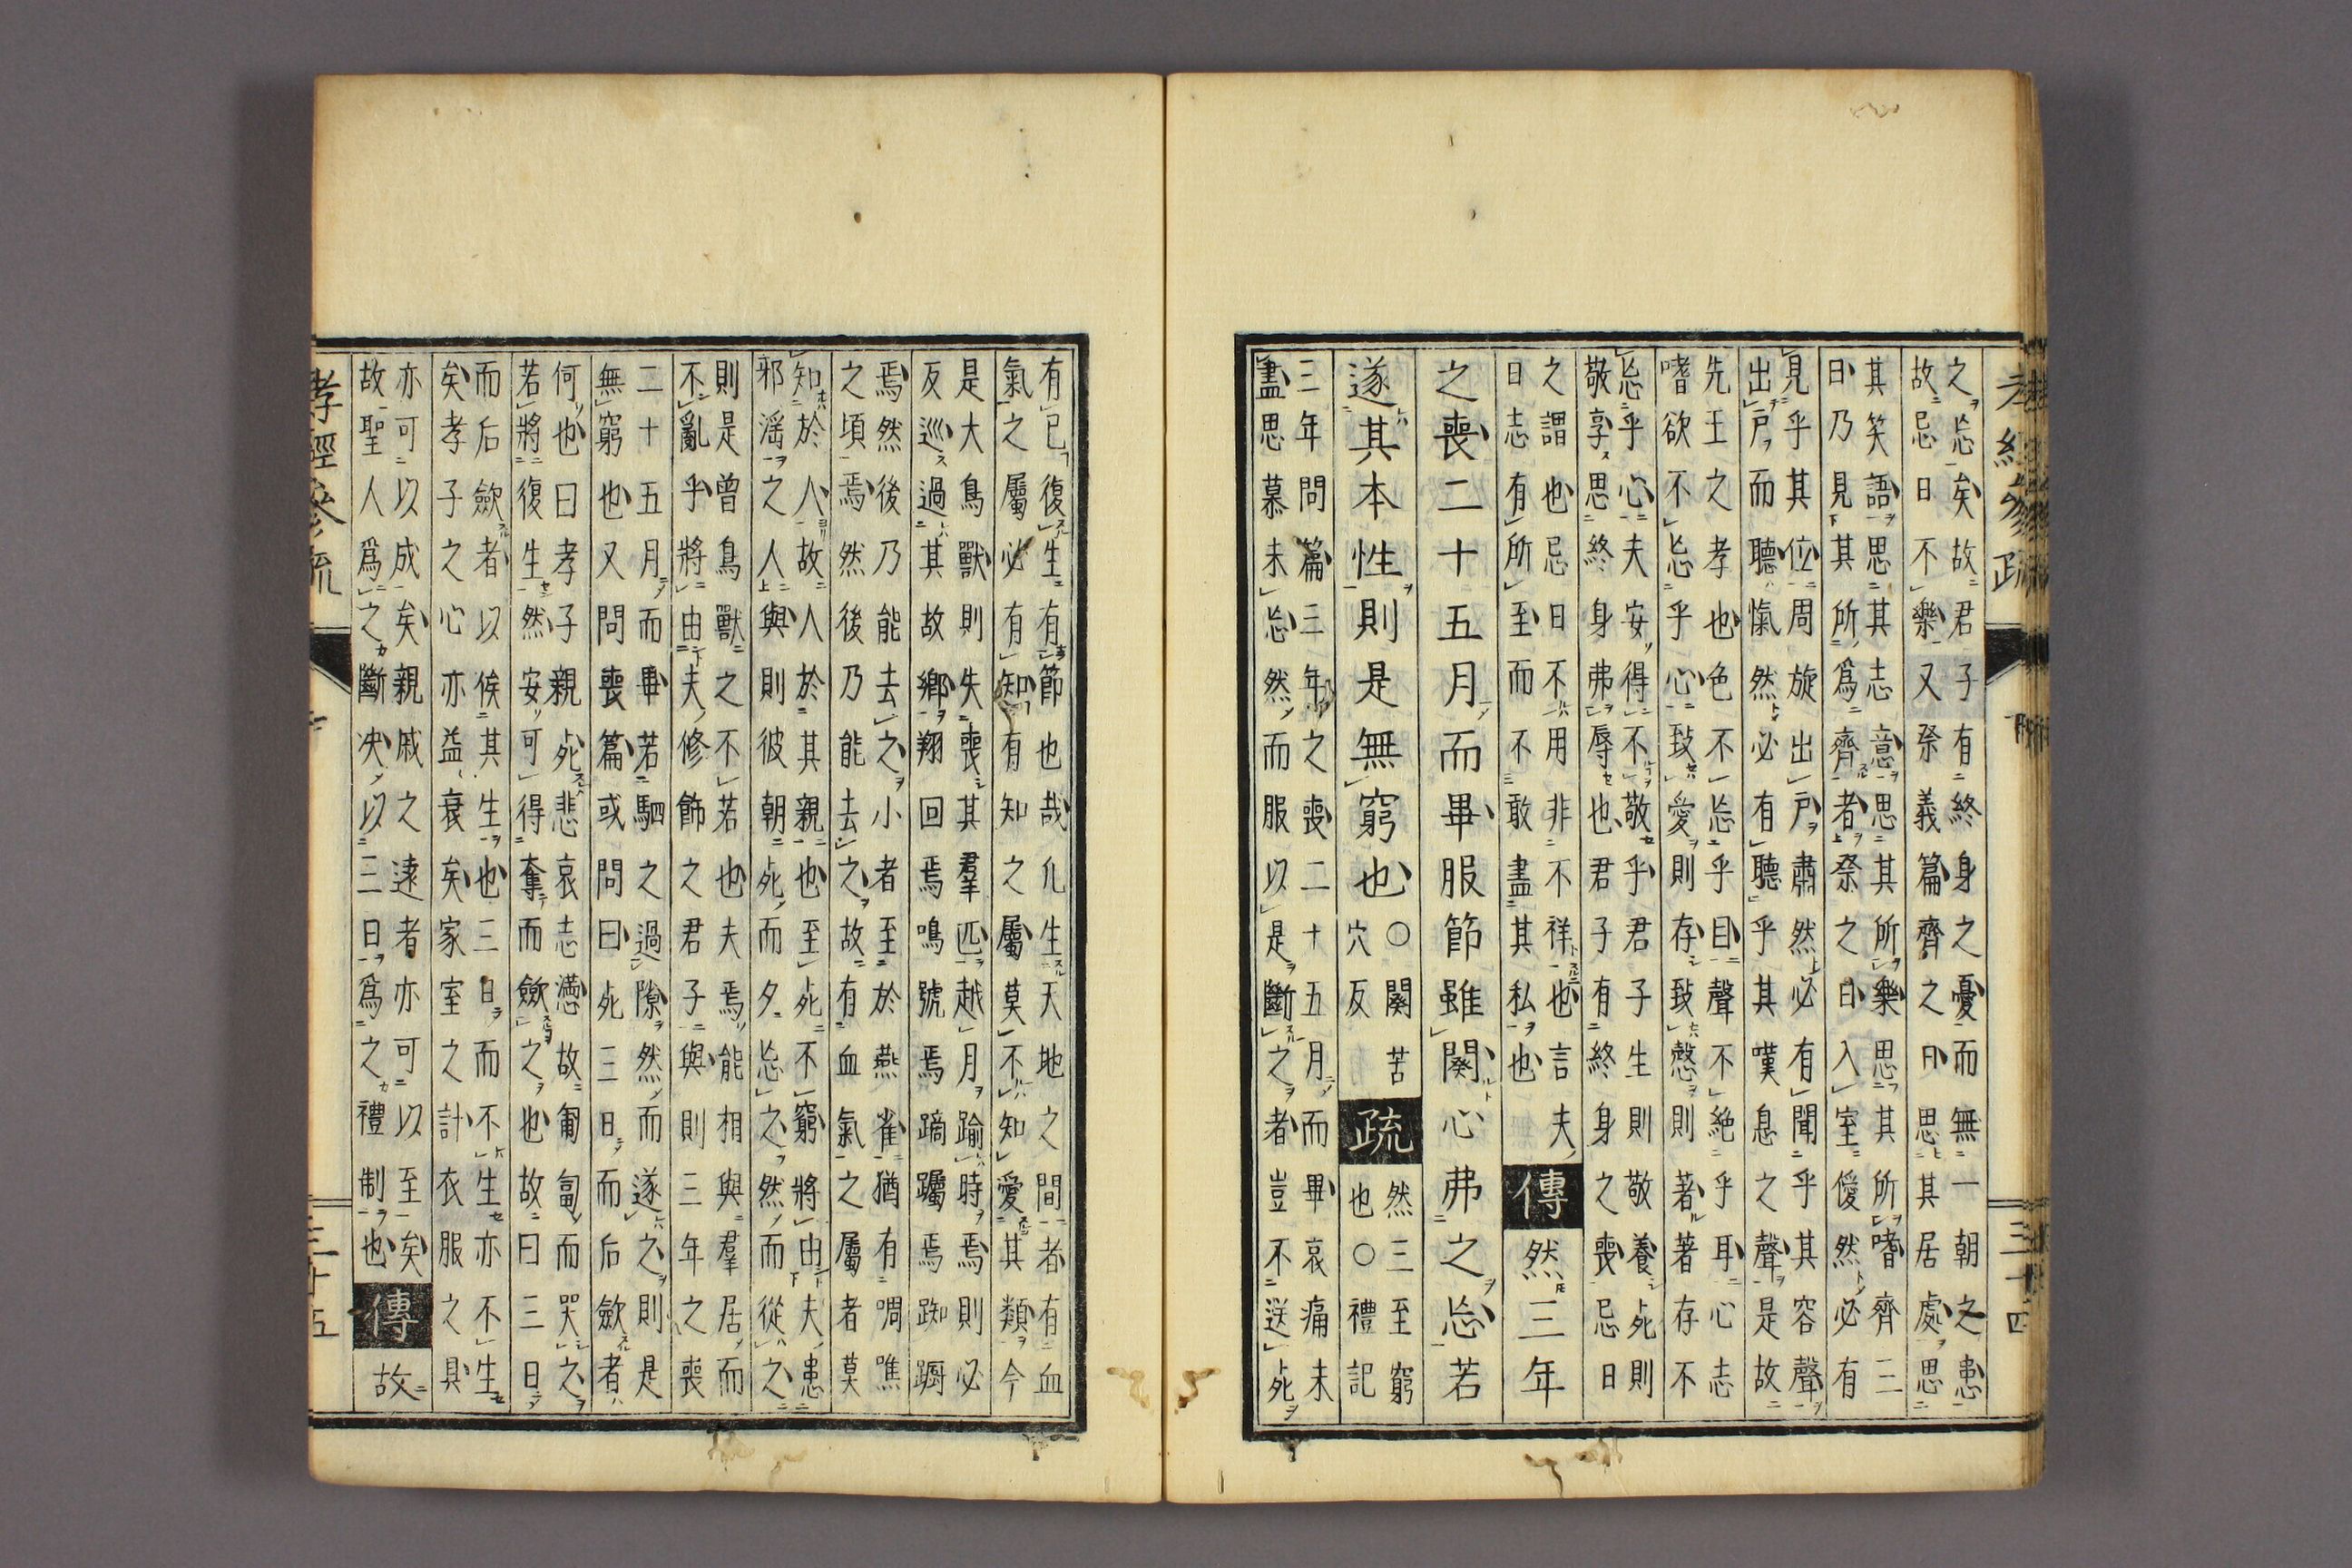 孝經參疏
三十四
之忘矣故君子有終身之憂而無一朝之患
故忌日不樂又祭義篇齊之日思其居處思
其笑語思其志意思其所樂思其所嗜齊三
日乃見其所爲齊者祭之日入室僾然必有
見乎其位周旋出戶肅然必有聞乎其容聲
出戶而聽愾然必有聽乎其嘆息之聲是故
先王之孝也色不忘乎目聲不絕乎耳心志
嗜欲不忘乎心致愛則存致慤則著著存不
忘乎心夫安得不敬乎君子生則敬養死則
敬享思終身弗辱也君子有終身之喪忌日
之謂也忌日不用非不祥也言夫
日志有所至而不敢盡其私也
傳然三年
之喪二十五月而畢服節雖闋心弗之忘若
遂其本性則是無窮也
○闋苦
穴反
疏
然三至窮
也○禮記
三年問篇三年之喪二十五月而畢哀痛未
盡思慕未忘然而服以是斷之者豈不送死
有已復生有節也哉凡生天地之間者有血
氣之屬必有知有知之屬莫不知愛其類今
是大鳥獸則失喪其羣匹越月踰時焉則必
反巡過其故鄉翔回焉鳴號焉蹢躅焉踟躕
焉然後乃能去之小者至於燕雀猶有啁噍
之頃焉然後乃能去之故有血氣之屬者莫
知於人故人於其親也至死不窮將由夫患
邪淫之人與則彼朝死而夕忘之然而從之
則是曾鳥獸之不若也夫焉能相與羣居而
不亂乎將由夫修飾之君子與則三年之喪
二十五月而畢若駟之過隙然而遂之則是
無窮也又問喪篇或問曰死三日而后斂者
何也曰孝子親死悲哀志懣故匍匐而哭之
若將復生然安可得奪而斂之也故曰三日
而后斂者以俟其生也三日而不生亦不生
矣孝子之心亦益衰矣家室之計衣服之具
亦可以成矣親戚之遠者亦可以至矣
故聖人爲之斷決以三日爲之禮制也
傳故
孝經參疏
三十五